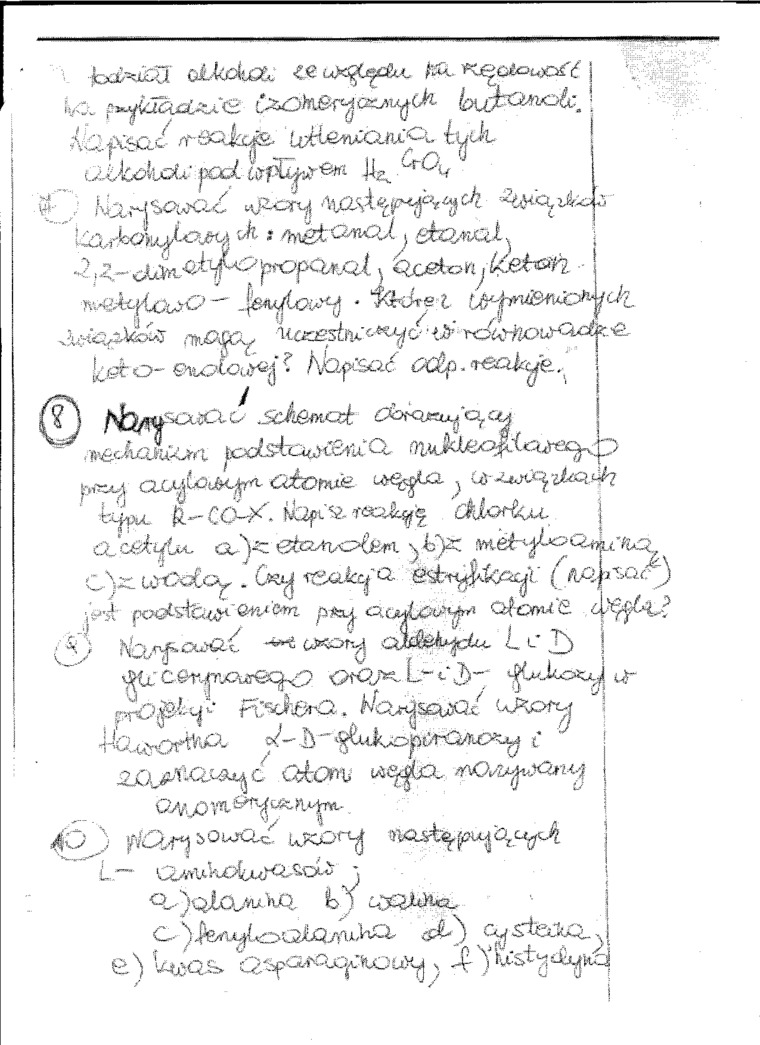 Podział alkoholi ze względu na rzędowość
na przykładzie izomerycznych butanoli.
Napisać reakcje utleniania tych
alkoholi pod wpływem H2 CrO4
7 Narysować wzory następujących związków
karbonylowych: metanal, etanal,
2,2-dimetylopropanal, aceton, keton
metylowo-fenylowy. Które z wymienionych
związków mogą uczestniczyć w równowadze
keto-enolowej? Napisać odp. reakcje.
8 Narysować schemat obrazujący
mechanizm podstawienia nukleofilowego
przy acylowym atomie węgla, w związkach
typu R-CO-X. Napisz reakcję chlorku
acetylu a) z etanolem, b) z metyloaminą,
c) z wodą. Czy reakcja estryfikacji (napisać)
jest podstawieniem przy acylowym atomie węgla?
9 Narysować wzory aldehydu L i D
glicerynowego oraz L- i D- glukozy w
projekcji Fischera. Narysować wzory
Hawortha α-D-glukopiranozy i
zaznaczyć atom węgla nazywany
anomerycznym.
10 Narysować wzory następujących
L- aminokwasów:
a) alanina b) walina
c) fenyloalanina d) cysteina,
e) kwas asparaginowy, f) histydyna